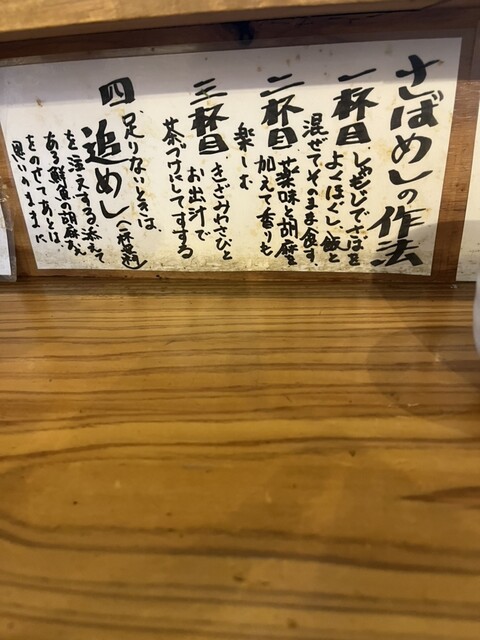 さばめしの作法
一杯目
しゃもじでさばを
よくほぐし、飯と
混ぜてそのまま食す。
二杯目
薬味と胡麻を
加えて香りを
楽しむ
三杯目
きざみわさびと
お出汁で
茶づけにしてすする
四
足りないときは、
追めし(一杯無料)
を注文する。添えて
ある鮮魚の胡麻あえ
をのせてあとは
思いのままに